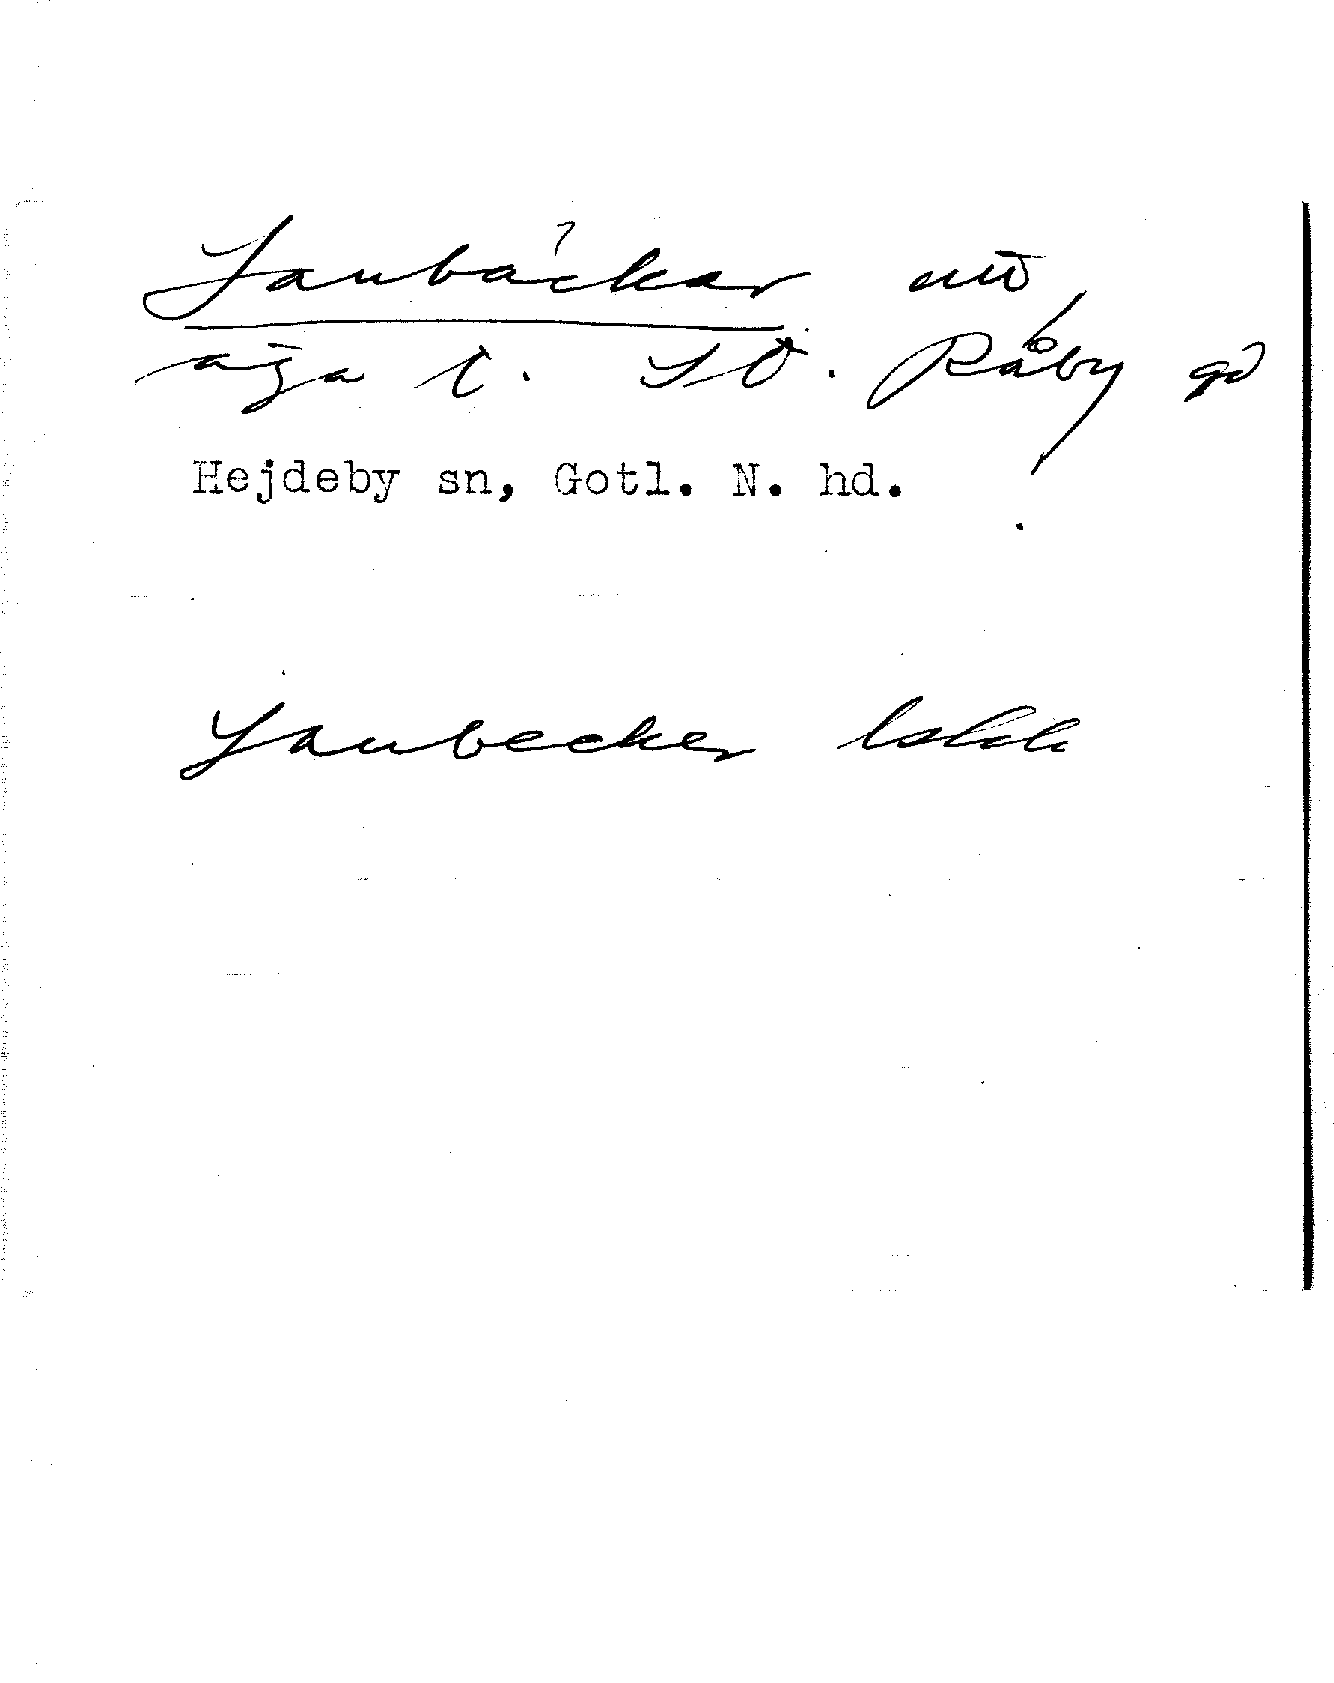 Laubäckar
äga t. St. Råby gd
Hejdeby sn, Gotl. N. hd.
Laubecker